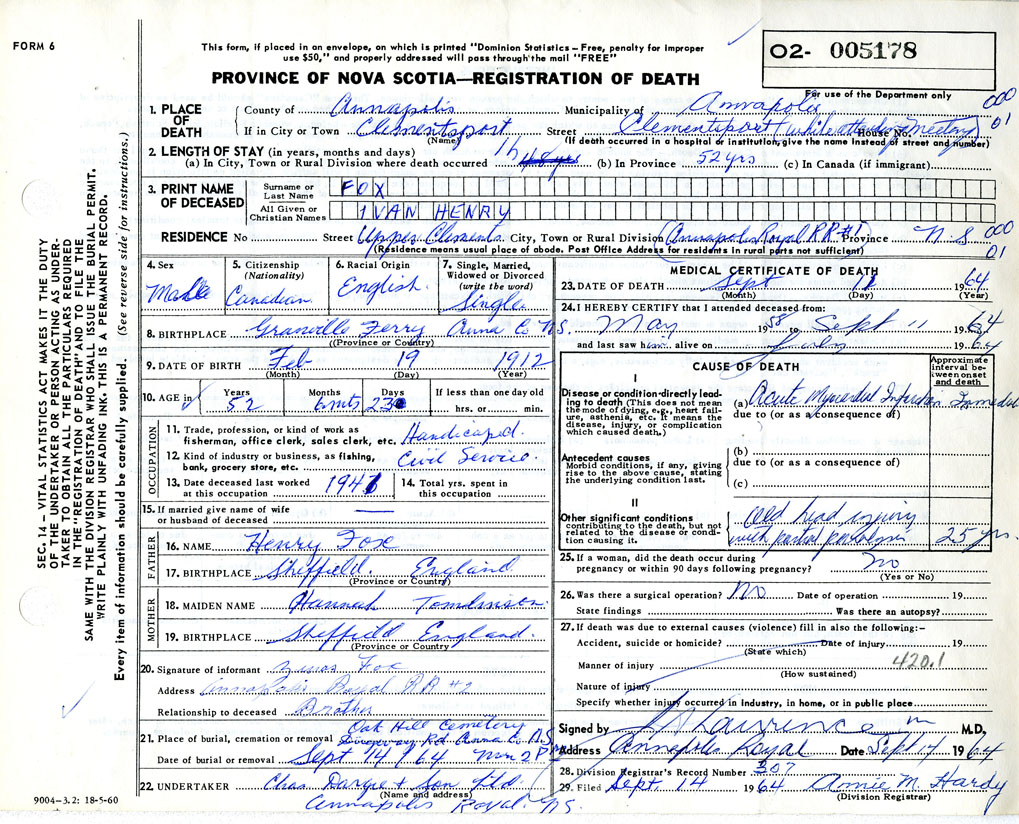 FORM 6
This form, if placed in an envelope, on which is printed "Dominion Statistics – Free, penalty for improper
use $50," and properly addressed will pass through the mail "FREE"
PROVINCE OF NOVA SCOTIA—REGISTRATION OF DEATH
O2- 005178
For use of the Department only
000
01
1. PLACE OF DEATH
County of Annapolis Municipality of Annapolis
If in City or Town Clementsport Street Clementsport (while attending meeting House No.
(Name) (If death occurred in a hospital or institution, give the name instead of street and number)
2. LENGTH OF STAY (in years, months and days)
(a) In City, Town or Rural Division where death occurred 1 h (b) In Province 52 yrs (c) In Canada (if immigrant)
3. PRINT NAME OF DECEASED
Surname or Last Name FOX
All Given or Christian Names IVAN HENRY
RESIDENCE No Street Upper Clements City, Town or Rural Division (Annapolis Royal RR#1) Province N S
000
01
(Residence means usual place of abode. Post Office Address for residents in rural parts not sufficient)
4. Sex Male
5. Citizenship (Nationality) Canadian
6. Racial Origin English
7. Single, Married, Widowed or Divorced (write the word) Single
8. BIRTHPLACE Granville Ferry Anna Co N.S.
(Province or Country)
9. DATE OF BIRTH Feb 19 1912
(Month) (Day) (Year)
10. AGE in Years 52 Months 6 mts Days 23 If less than one day old hrs. or min.
OCCUPATION
11. Trade, profession, or kind of work as
fisherman, office clerk, sales clerk, etc. Handicaped.
12. Kind of industry or business, as fishing,
bank, grocery store, etc. Civil Service.
13. Date deceased last worked
at this occupation 1941
14. Total yrs. spent in
this occupation
15. If married give name of wife
or husband of deceased —
FATHER
16. NAME Henry Fox
17. BIRTHPLACE Sheffield. England
(Province or Country)
MOTHER
18. MAIDEN NAME Hannah Tomlinson
19. BIRTHPLACE Sheffield England.
(Province or Country)
20. Signature of informant Fox
Address Annapolis Royal RR #2
Relationship to deceased Brother
Oak Hill Cemetery
21. Place of burial, cremation or removal Rd. Anna Co. N.S
Date of burial or removal Sept 14/64 2 P
22. UNDERTAKER Chas Dargie + Son Ltd.
(Name and address)
Annapolis Royal. NS.
9004-3.2: 18-5-60
MEDICAL CERTIFICATE OF DEATH
23. DATE OF DEATH Sept 11 1964
(Month) (Day) (Year)
24. I HEREBY CERTIFY that I attended deceased from:
May 1958 to: Sept 11 1964
and last saw him alive on July 1964
CAUSE OF DEATH
Approximate interval between onset and death
I
Disease or condition directly leading to death (This does not mean the mode of dying, e.g., heart failure, asthenia, etc. It means the disease, injury, or complication which caused death.)
(a) Acute Myocardial Infarction
due to (or as a consequence of)
Antecedent causes
Morbid conditions, if any, giving rise to the above cause, stating the underlying condition last.
(b)
due to (or as a consequence of)
(c)
II
Other significant conditions
contributing to the death, but not related to the disease or condition causing it.
Old head injury
with partial paralysis 25 yrs.
25. If a woman, did the death occur during
pregnancy or within 90 days following pregnancy? no
(Yes or No)
26. Was there a surgical operation? No Date of operation 19
State findings Was there an autopsy?
27. If death was due to external causes (violence) fill in also the following:–
Accident, suicide or homicide? Date of injury 19
(State which)
Manner of injury 420.1
(How sustained)
Nature of injury
Specify whether injury occurred in industry, in home, or in public place
Signed by Lawrence M.D.
Address Annapolis Royal Date Sept 14 1964
28. Division Registrar's Record Number 307
29. Filed Sept. 14 1964 Annie M. Hardy
(Division Registrar)
SEC. 14 – VITAL STATISTICS ACT MAKES IT THE DUTY
OF THE UNDERTAKER OR PERSON ACTING AS UNDER-
TAKER TO OBTAIN ALL THE PARTICULARS REQUIRED
IN THE "REGISTRATION OF DEATH" AND TO FILE THE
SAME WITH THE DIVISION REGISTRAR WHO SHALL ISSUE THE BURIAL PERMIT.
WRITE PLAINLY WITH UNFADING INK. THIS IS A PERMANENT RECORD.
Every item of information should be carefully supplied. (See reverse side for instructions.)